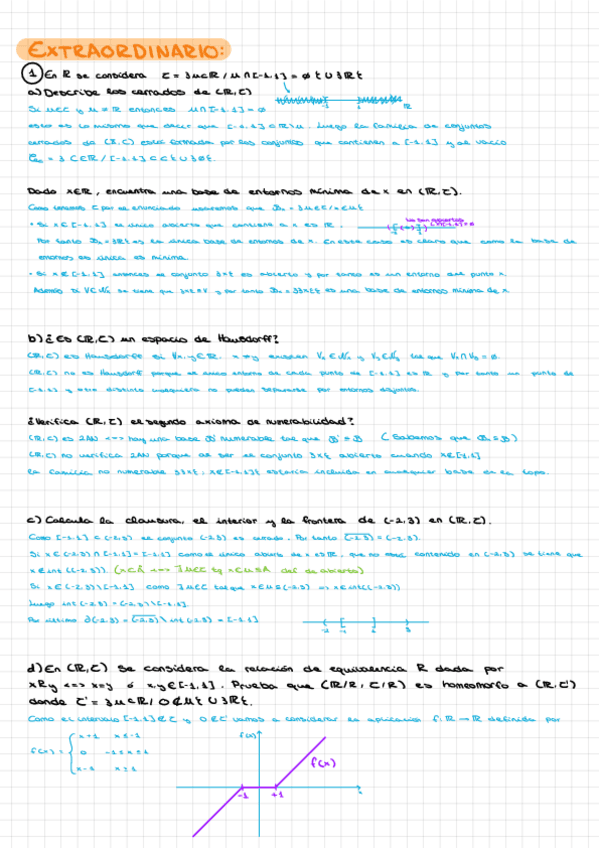 EXTRAORDINARIO:
1 En R se considera τ = {u⊂R / u∩[-1,1] = ∅} ∪ {R}
a) Describe los cerrados de (R,τ)
Si u∈τ y u ≠ R entonces u∩[-1,1] = ∅
esto es lo mismo que decir que [-1,1] ⊂ R\u. Luego la familia de conjuntos
cerrados de (R,τ) está formada por los conjuntos que contienen a [-1,1] y al vacío
= {C⊂R / [-1,1] ⊂ C} ∪ {∅}.
Dado x∈R, encuentra una base de entornos mínima de x en (R,τ).
Como tenemos τ por el enunciado usaremos que Bx = {u∈τ / x∈u}
• Si x∈[-1,1] el único abierto que contiene a x es R.
Por tanto Bx = {R} es la única base de entornos de x. En ese caso es claro que como la base de
entornos es única es mínima.
• Si x∉[-1,1] entonces el conjunto {x} es abierto y por tanto es un entorno del punto x.
Además si V∈Nx se tiene que {x}⊂V y por tanto Bx = {{x}} es una base de entornos mínima de x
b) ¿Es (R,τ) un espacio de Hausdorff?
(R,τ) es Hausdorff si ∀x,y∈R, x≠y existen Vx∈Nx y Vy∈Ny tal que Vx∩Vy = ∅.
(R,τ) no es Hausdorff porque el único entorno de cada punto de [-1,1] es R y por tanto un punto de
[-1,1] y otro distinto cualquiera no pueden separarse por entornos disjuntos.
¿Verifica (R,τ) el segundo axioma de numerabilidad?
(R,τ) es 2AN <=> hay una base B' numerable tal que
(R,τ) no verifica 2AN porque al ser el conjunto {x} abierto cuando
la familia no numerable estaría incluida en cualquier base de la topo.
c) Calcula la clausura, el interior y la frontera de (-2,3) en (R,τ).
Como [-1,1] ⊂ (-2,3) el conjunto (-2,3) es cerrado. Por tanto
Si x∈(-2,3)∩[-1,1] = [-1,1] como el único abierto de x es R, que no está contenido en (-2,3) se tiene que
x∉int((-2,3)). def de abierto)
Si x∈(-2,3)\[-1,1] como ∃u∈τ tal que x∈u⊂(-2,3) => x∈int((-2,3))
Luego int(-2,3) = (-2,3)\[-1,1].
Por último ∂(-2,3) = (-2,3)\int(-2,3) = [-1,1]
d) En (R,τ) se considera la relación de equivalencia R dada por
xRy <=> x=y ó x,y∈[-1,1]. Prueba que (R/R, τ/R) es homeomorfo a (R,τ')
donde τ' = {u⊂R / 0∉u} ∪ {R}.
Como el intervalo [-1,1]∉τ y 0∉τ' vamos a considerar la aplicación f:R→R definida por
f(x) = { x+1 x≤-1
0 -1≤x≤1
x-1 x≥1
f(x)
f(x)
-1 +1